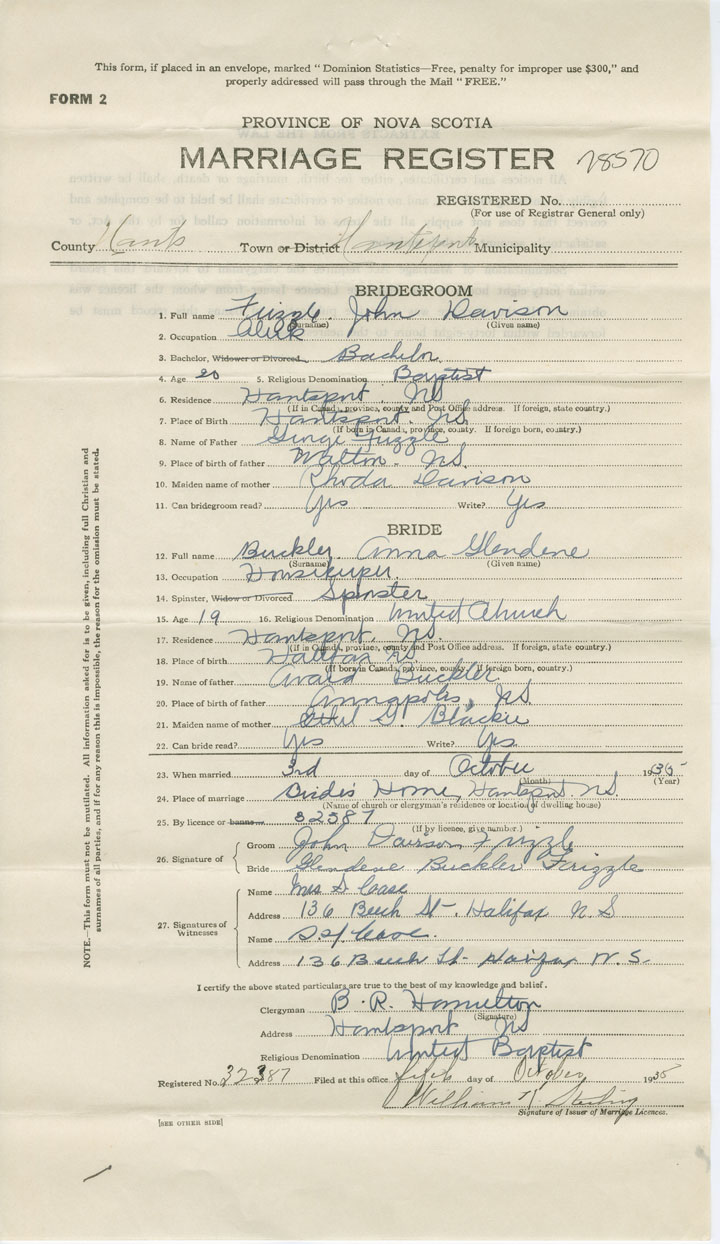 This form, if placed in an envelope, marked "Dominion Statistics—Free, penalty for improper use $300," and
properly addressed will pass through the Mail "FREE."
FORM 2
PROVINCE OF NOVA SCOTIA
MARRIAGE REGISTER 28570
REGISTERED No.
(For use of Registrar General only)
County Hants Town or District Hantsport Municipality
BRIDEGROOM
1. Full name Frizzle John Davison
(Surname) (Given name)
2. Occupation Clerk
3. Bachelor, Widower or Divorced Bachelor
4. Age 20 5. Religious Denomination Baptist
6. Residence Hantsport NS
(If in Canada, province, county and Post Office address. If foreign, state country.)
7. Place of Birth Hantsport NS.
(If born in Canada, province, county. If foreign born, country.)
8. Name of Father George Frizzle
9. Place of birth of father Walton NS.
10. Maiden name of mother Rhoda Davison
11. Can bridegroom read? Yes Write? Yes
BRIDE
12. Full name Buckler Anna Glendene
(Surname) (Given name)
13. Occupation Housekeeper
14. Spinster, Widow or Divorced Spinster
15. Age 19 16. Religious Denomination United Church
17. Residence Hantsport, NS.
(If in Canada, province, county and Post Office address. If foreign, state country.)
18. Place of birth Halifax NS.
(If born in Canada, province, county, If foreign born, country.)
19. Name of father Avard Buckler
20. Place of birth of father Annapolis, NS
21. Maiden name of mother Ethel G. Blackie
22. Can bride read? Yes Write? Yes
23. When married 3rd day of October 1935
(Month) (Year)
24. Place of marriage Brides Home, Hantsport NS.
(Name of church or clergyman's residence or location of dwelling house)
25. By licence or banns 32387
(If by licence, give number.)
26. Signature of
Groom John Davison Frizzle
Bride Glendene Buckler Frizzle
27. Signatures of Witnesses
Name Mrs S.
Address 136 Beech St. Halifax N.S
Name
Address 136 Beech St. Halifax N.S.
I certify the above stated particulars are true to the best of my knowledge and belief.
Clergyman B. R. Hamilton
(Signature)
Address Hantsport NS
Religious Denomination United Baptist
Registered No. 32387 Filed at this office fifth day of October 1935
William K Sterling
Signature of Issuer of Marriage Licences.
[SEE OTHER SIDE]
NOTE.—This form must not be mutilated. All information asked for is to be given, including full Christian and
surnames of all parties, and if for any reason this is impossible, the reason for the omission must be stated.